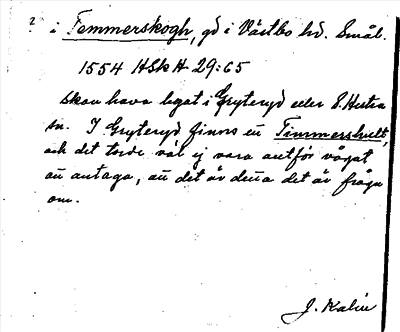 ? i Femmerskogh, gd i Västbo hd. Smål.
1554 HSkH 29:65
skan hava legat i Gryteryd eller S. Hestra
sn. I Gryteryd finns en Timmershult,
och det torde väl ej vara alltför vågat
att antaga, att det är detta det är fråga
om.
J. Kalin